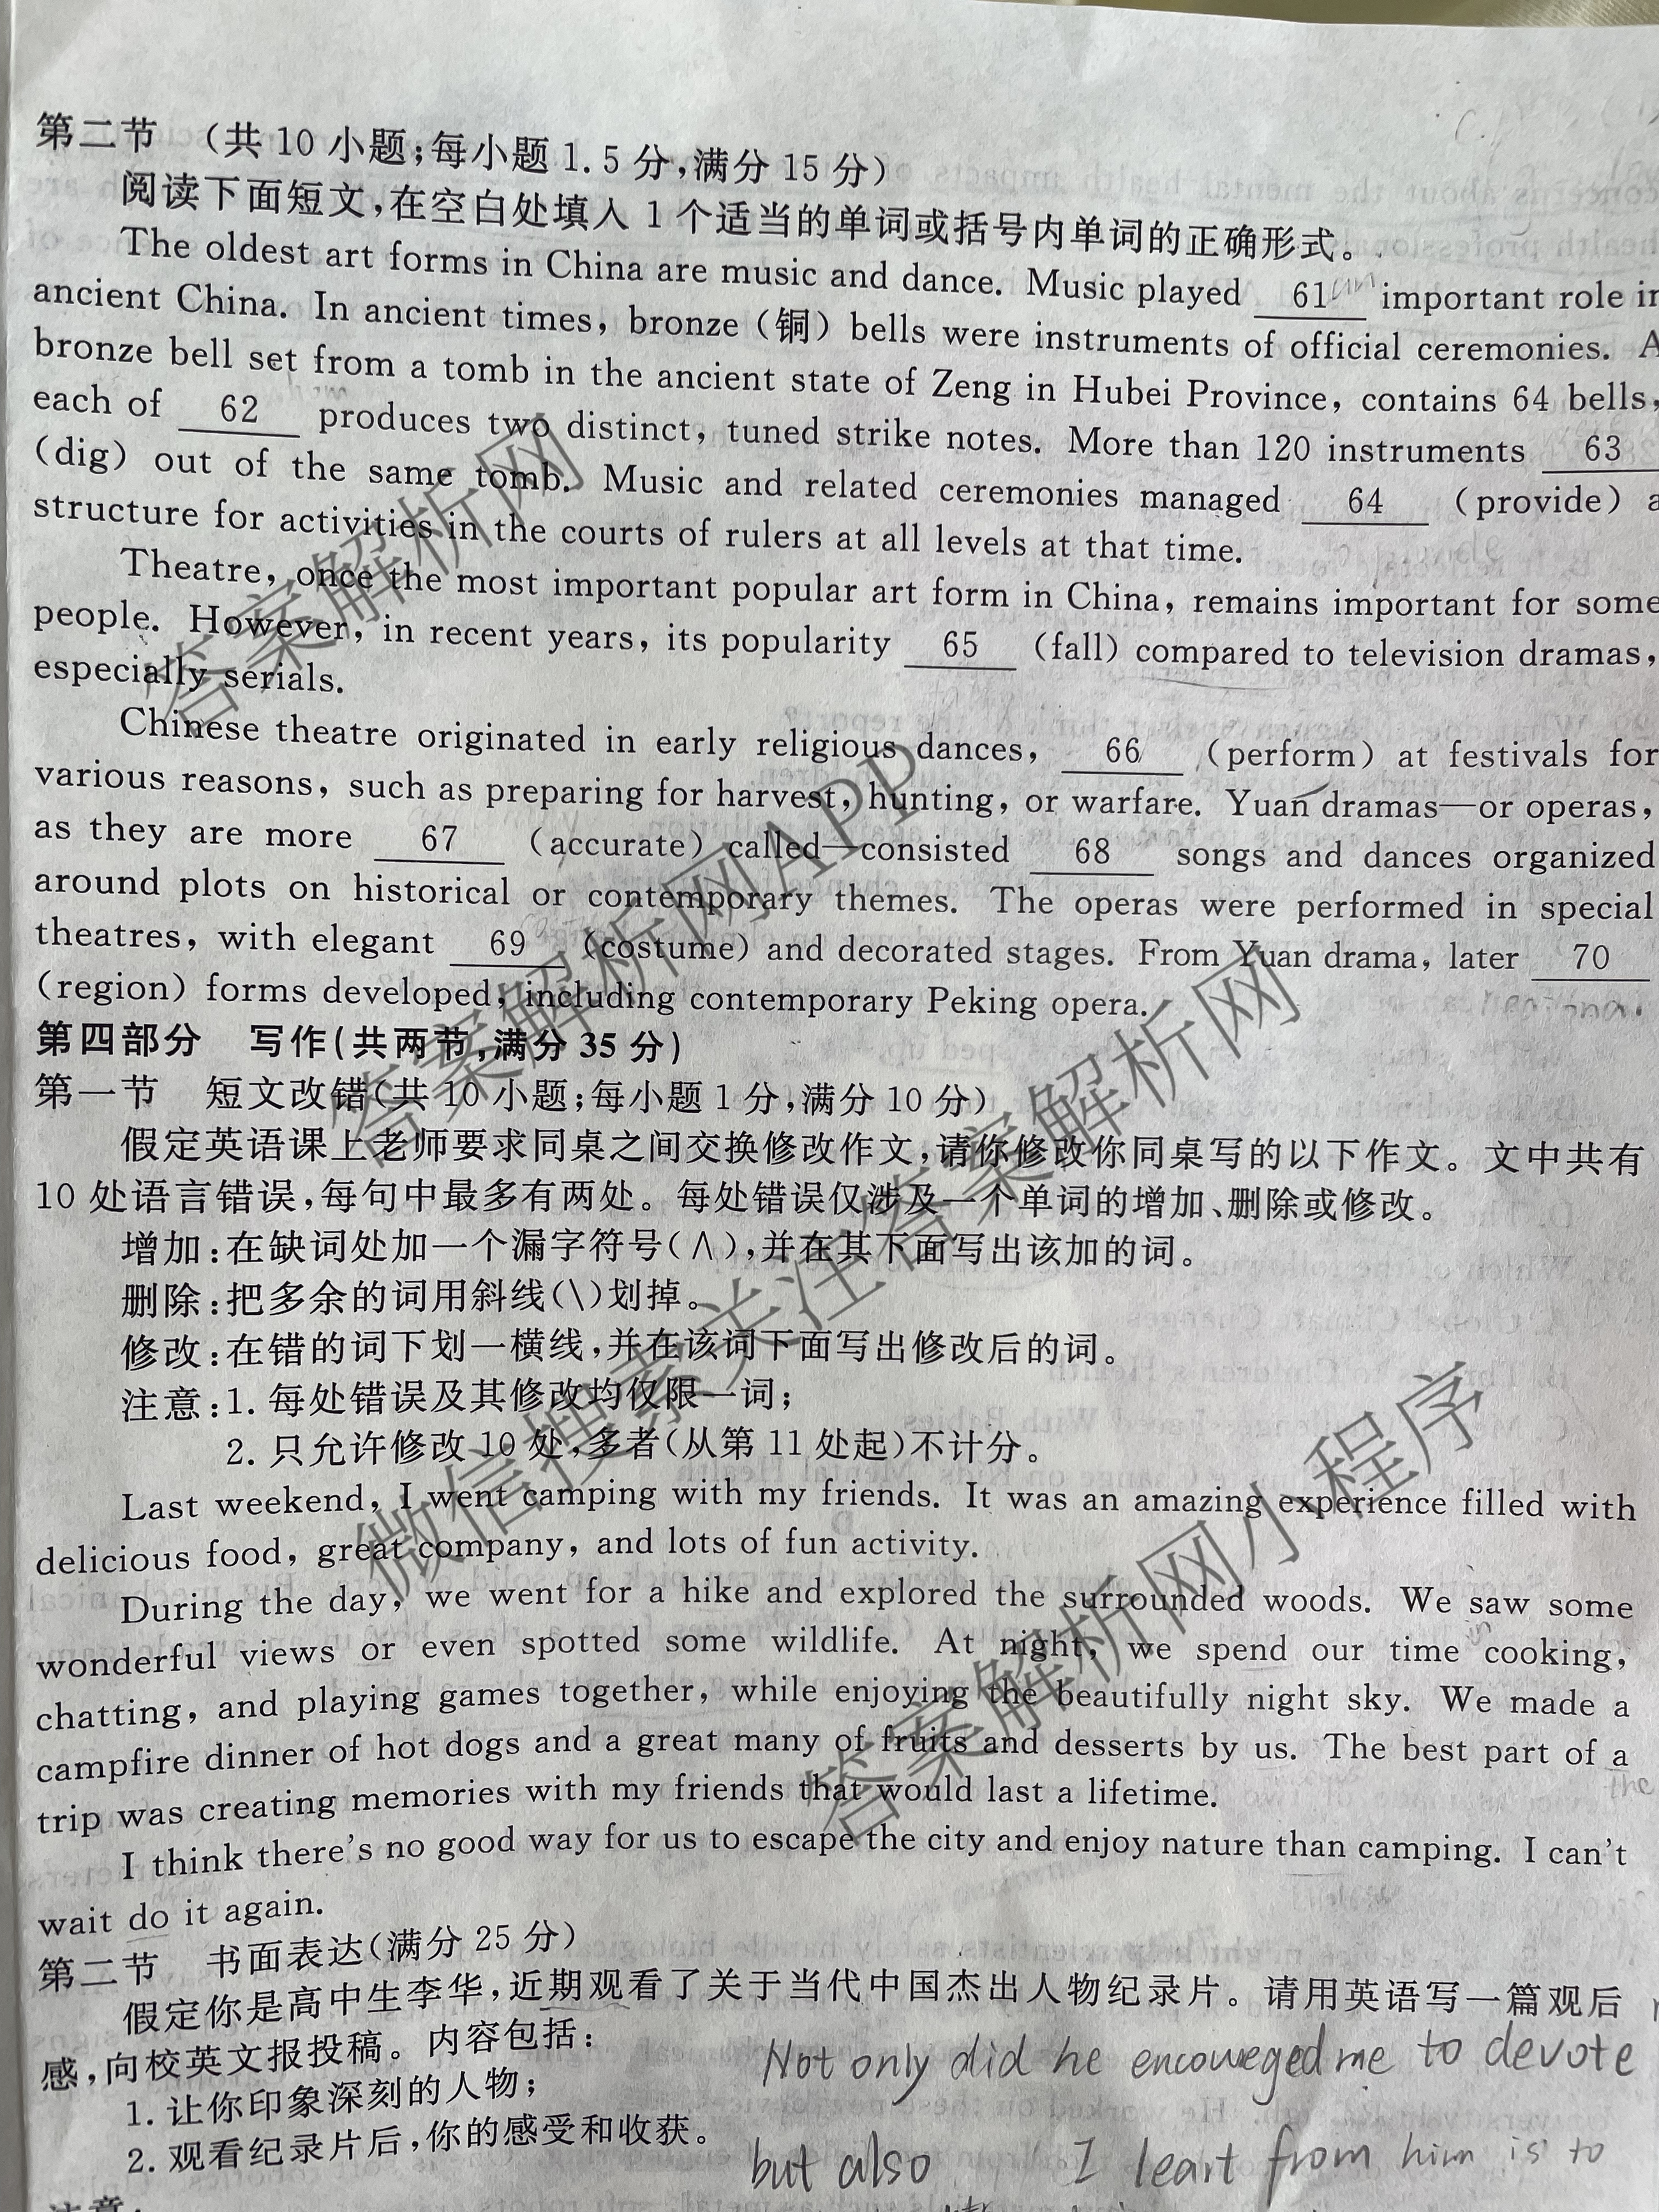 第二节 (共 10 小题;每小题 1.5 分,满分 15 分)
阅读下面短文,在空白处填入 1 个适当的单词或括号内单词的正确形式。
The oldest art forms in China are music and dance. Music played 61 important role in
ancient China. In ancient times, bronze (铜) bells were instruments of official ceremonies. A
bronze bell set from a tomb in the ancient state of Zeng in Hubei Province, contains 64 bells,
each of 62 produces two distinct, tuned strike notes. More than 120 instruments 63
(dig) out of the same tomb. Music and related ceremonies managed 64 (provide) a
structure for activities in the courts of rulers at all levels at that time.
Theatre, once the most important popular art form in China, remains important for some
people. However, in recent years, its popularity 65 (fall) compared to television dramas,
especially serials.
Chinese theatre originated in early religious dances, 66 (perform) at festivals for
various reasons, such as preparing for harvest, hunting, or warfare. Yuan dramas—or operas,
as they are more 67 (accurate) called—consisted 68 songs and dances organized
around plots on historical or contemporary themes. The operas were performed in special
theatres, with elegant 69 (costume) and decorated stages. From Yuan drama, later 70
(region) forms developed, including contemporary Peking opera.
第四部分 写作(共两节,满分 35 分)
第一节 短文改错(共 10 小题;每小题 1 分,满分 10 分)
假定英语课上老师要求同桌之间交换修改作文,请你修改你同桌写的以下作文。文中共有
10 处语言错误,每句中最多有两处。每处错误仅涉及一个单词的增加、删除或修改。
增加:在缺词处加一个漏字符号(∧),并在其下面写出该加的词。
删除:把多余的词用斜线(\)划掉。
修改:在错的词下划一横线,并在该词下面写出修改后的词。
注意:1. 每处错误及其修改均仅限一词;
2. 只允许修改 10 处,多者(从第 11 处起)不计分。
Last weekend, I went camping with my friends. It was an amazing experience filled with
delicious food, great company, and lots of fun activity.
During the day, we went for a hike and explored the surrounded woods. We saw some
wonderful views or even spotted some wildlife. At night, we spend our time cooking,
chatting, and playing games together, while enjoying the beautifully night sky. We made a
campfire dinner of hot dogs and a great many of fruits and desserts by us. The best part of a
the
trip was creating memories with my friends that would last a lifetime.
I think there's no good way for us to escape the city and enjoy nature than camping. I can't
wait do it again.
第二节 书面表达(满分 25 分)
假定你是高中生李华,近期观看了关于当代中国杰出人物纪录片。请用英语写一篇观后
感,向校英文报投稿。内容包括:
1. 让你印象深刻的人物;
2. 观看纪录片后,你的感受和收获。
Not only did he encoureged me to devote
but also I leart from him is to
注意:
答案解析网
答案解析网APP
微信搜索关注答案解析网
答案解析网小程序